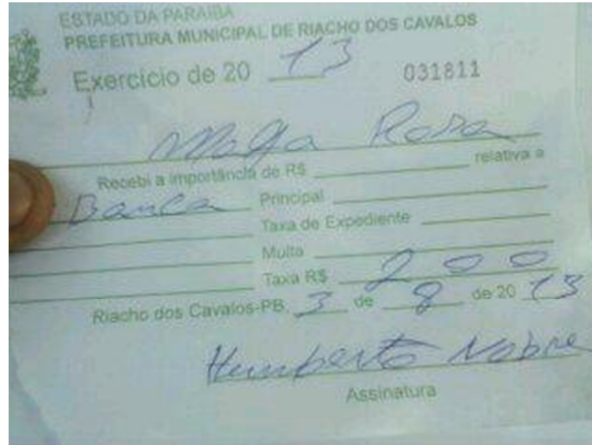 ESTADO DA PARAIBA
PREFEITURA MUNICIPAL DE RIACHO DOS CAVALOS
Exercício de 20 13 031811
Rosa
Recebi a importância de R$ relativa a
Banca Principal
Taxa de Expediente
Multa
Taxa R$ 200
Riacho dos Cavalos-PB, 3 de 8 de 20 13
Humberto Nobre
Assinatura